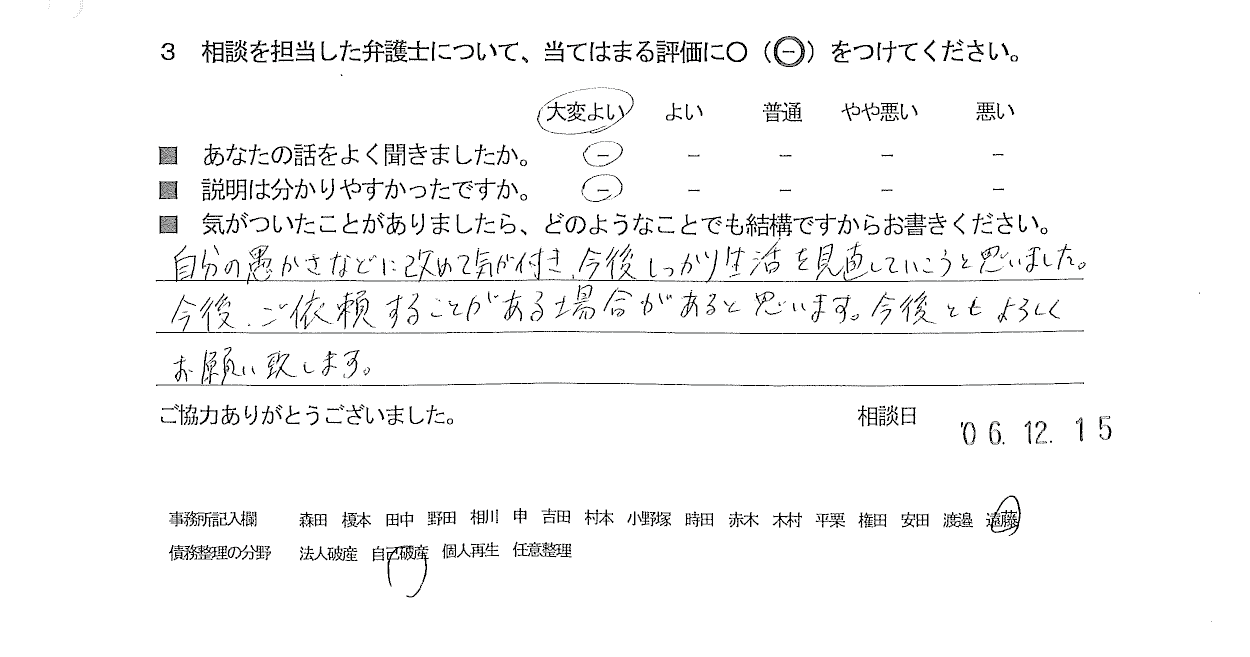 3 相談を担当した弁護士について、当てはまる評価に〇（㊀）をつけてください。
大変よい よい 普通 やや悪い 悪い
■ あなたの話をよく聞きましたか。 － － － － －
■ 説明は分かりやすかったですか。 － － － － －
■ 気がついたことがありましたら、どのようなことでも結構ですからお書きください。
自分の愚かさなどに改めて気が付き、今後しっかり生活を見直していこうと思いました。
今後、ご依頼することがある場合があると思います。今後ともよろしく
お願い致します。
ご協力ありがとうございました。 相談日 '06.12.15
事務所記入欄 森田 榎本 田中 野田 相川 申 吉田 村木 小野塚 時田 赤木 木村 平栗 権田 安田 渡邉 遠藤
債務整理の分野 法人破産 自己破産 個人再生 任意整理